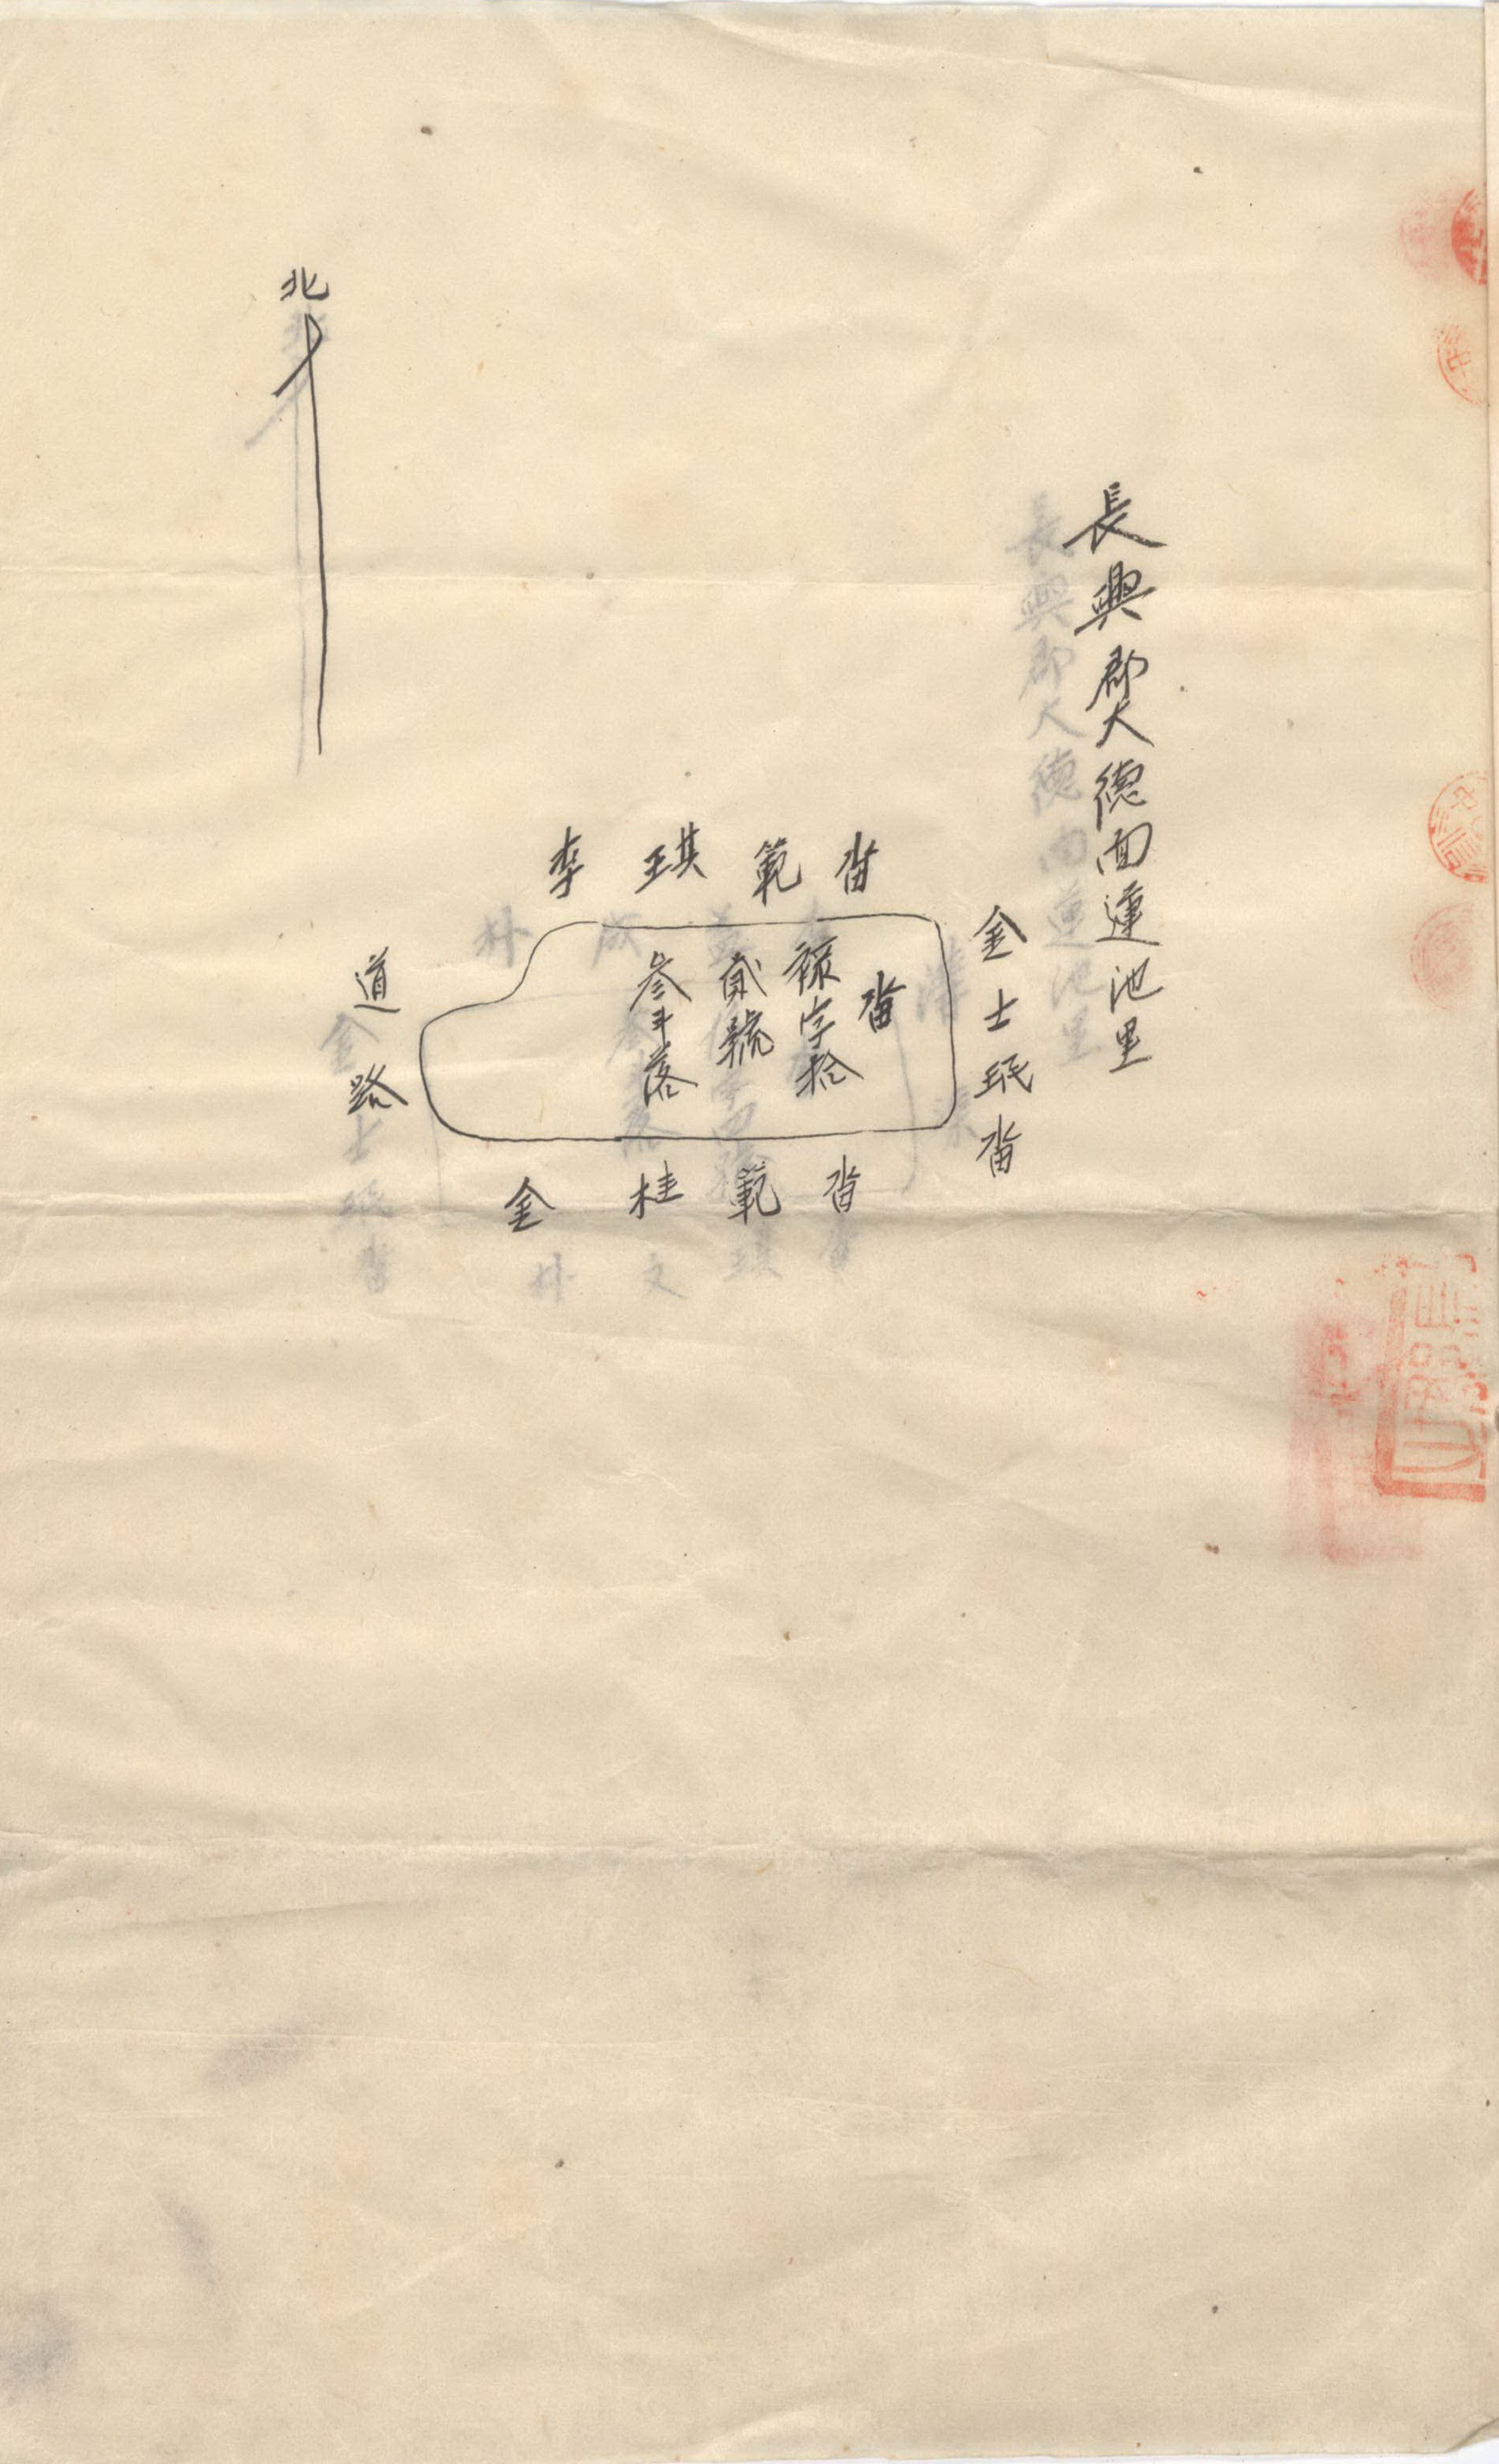 長興郡大德面蓮池里
北
李琪範畓
金士珉畓
畓
祿字拾
貳號
參斗落
道路
金桂範畓